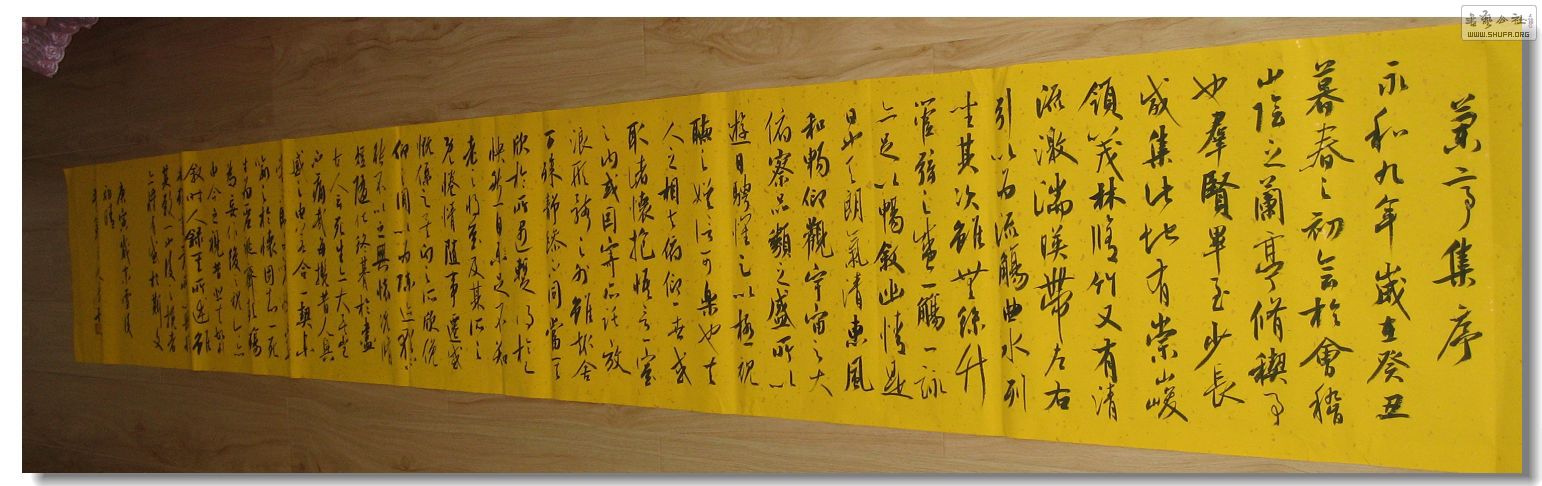 蘭亭集序
永和九年歲在癸丑
暮春之初會於會稽
山陰之蘭亭脩禊事
也羣賢畢至少長
咸集此地有崇山峻
領茂林脩竹又有清
流激湍暎帶左右
引以為流觴曲水列
坐其次雖無絲竹
管弦之盛一觴一詠
亦足以暢敘幽情是
日也天朗氣清惠風
和暢仰觀宇宙之大
俯察品類之盛所以
遊目騁懷足以極視
聽之娛信可樂也夫
人之相與俯仰一世或
取諸懷抱悟言一室
之內或因寄所託放
浪形骸之外雖趣舍
万殊靜躁不同當其
欣於所遇暫得於
快然自足不知
老之將至及其所之
既倦情隨事遷感
慨係之矣向之所欣俛
仰之間以為陳迹猶
能不以之興懷況脩
短隨化終期於盡
古人云死生亦大矣豈
不痛哉每攬昔人興
感之由若合一契未
喻之於懷固知一死
生為虛誕齊彭殤
為妄作後之視今亦
由今之視昔悲夫故
敘時人錄其所述雖
其致一也後之攬者
亦將有感於斯文
庚寅歲末雪後
初晴
書藝公社
WWW.SHUFA.ORG